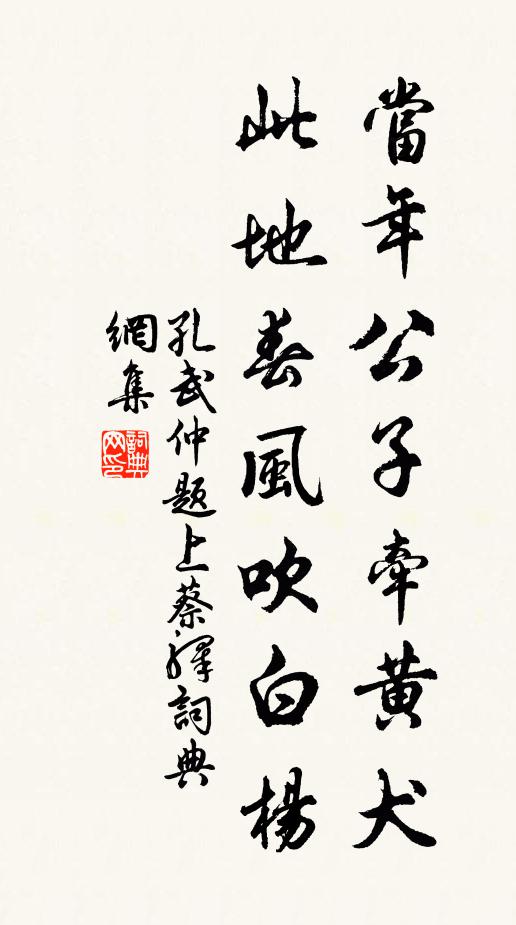 當年公子牽黃犬
此地春風吹白楊
孔武仲題上蔡驛詞典
網集
詞典
网印